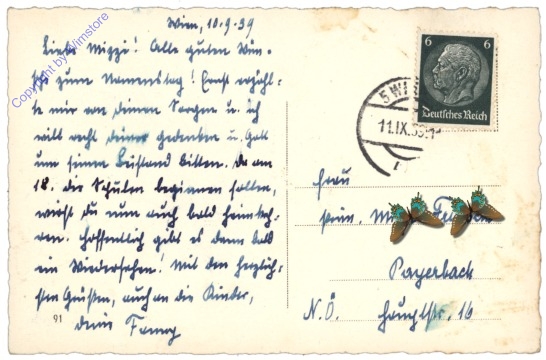 Wien, 10.9.39
Liebe Mizzi! Alle guten Wün-
sche zum Namenstag! Ernst erzähl-
te mir von deinen Sorgen u. ich
will recht deiner gedenken u. Gott
um seinen Beistand bitten. Da am
18. die Schulen beginnen sollen,
wirst du nun auch bald heimkeh-
ren. Hoffentlich gibt es dann bald
ein Wiedersehen! Mit den herzlich-
sten Grüßen, auch an die Kinder,
deine Fanny
91
Copyright by Ehlimstore
6 6
Deutsches Reich
11.IX.39
Frau
Payerbach
N.Ö. Hauptstr. 16